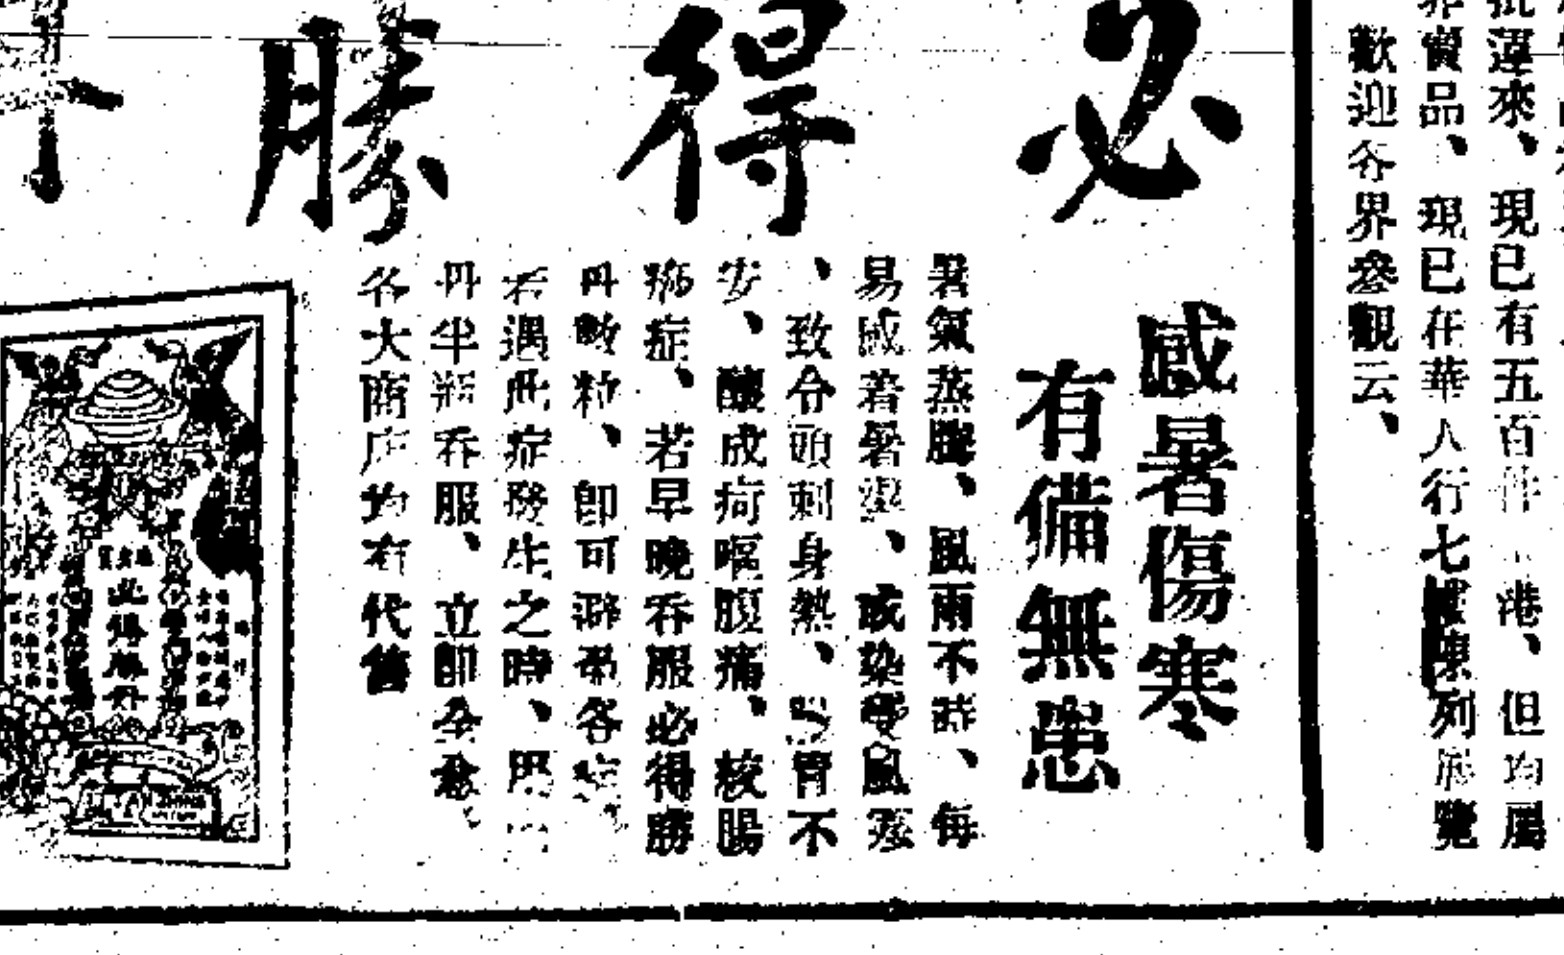 批運來、現已有五百件　港、但均屬
賣品、現已在華人行七樓陳列展覽
歡迎各界參觀云、
必得勝丹
感暑傷寒
有備無患
暑氣蒸騰、風雨不時、每
易感着暑濕、或染受風寒
、致令頭刺身熱、腸胃不
安、釀成疴嘔腹痛、絞腸
痧症、若早晚吞服必得勝
丹數粒、卽可辟免各症
若遇此症發生之時、用
丹半瓶吞服、立卽全愈、
各大商店均有代售
必得勝丹